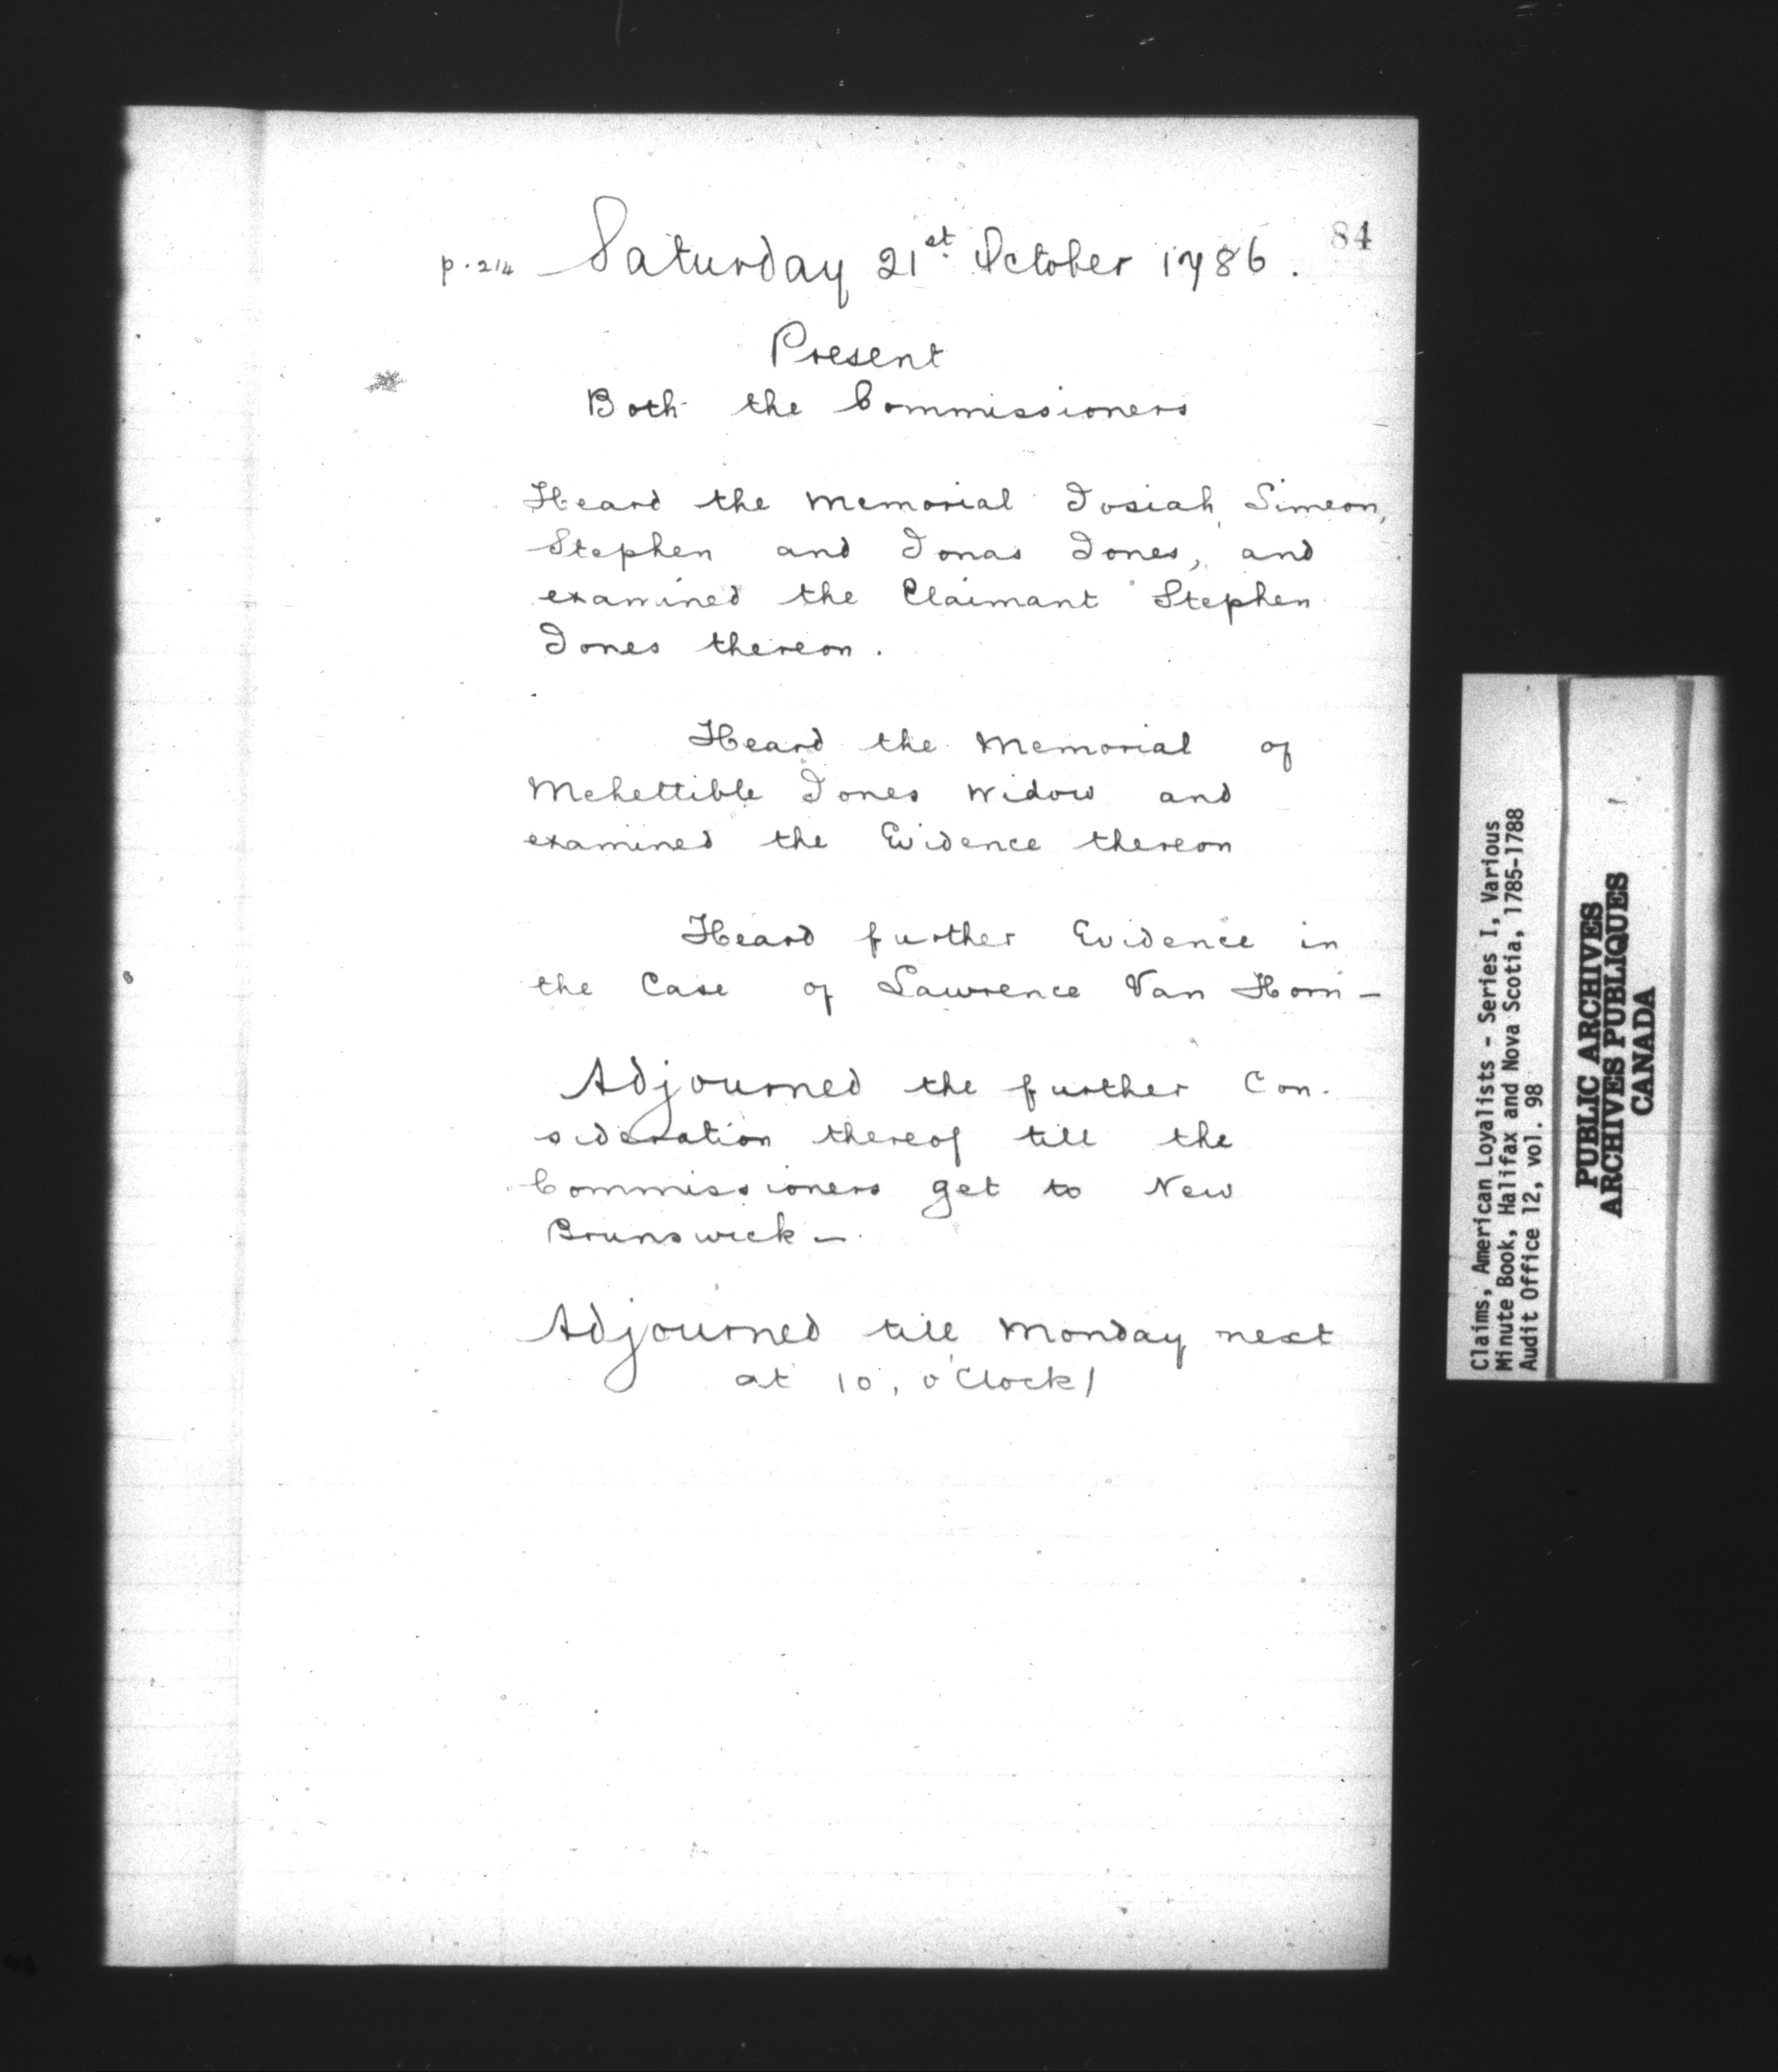 84
p. 214 Saturday 21st October 1786.
Present
Both the Commissioners
Heard the Memorial Josiah, Simeon,
Stephen and Jonas Jones, and
examined the Claimant Stephen
Jones thereon.
Heard the Memorial of
Mehettible Jones Widow and
examined the Evidence thereon
Heard further Evidence in
the Case of Lawrence Van Horn -
Adjourned the further Con-
sideration thereof till the
Commissioners get to New
Brunswick -
Adjourned till Monday next
at 10, o'Clock/
Claims, American Loyalists - Series I, Various
Minute Book, Halifax and Nova Scotia, 1785-1788
Audit Office 12, vol. 98
PUBLIC ARCHIVES
ARCHIVES PUBLIQUES
CANADA